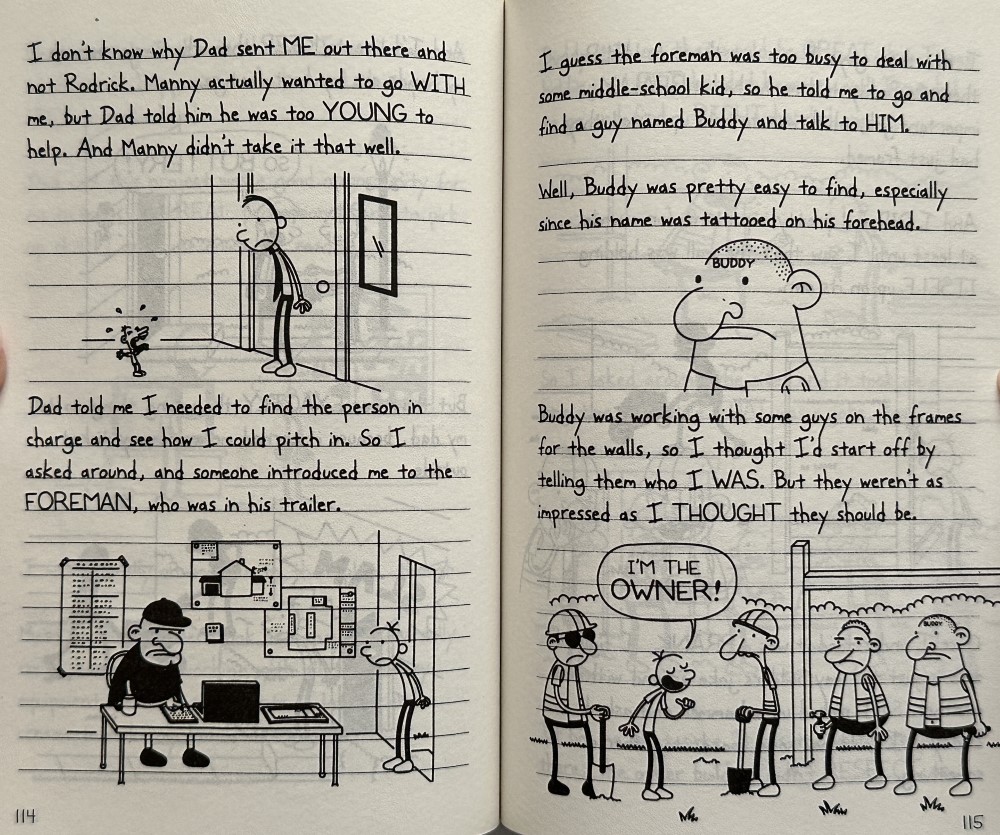 I don't know why Dad sent ME out there and
not Rodrick. Manny actually wanted to go WITH
me, but Dad told him he was too YOUNG to
help. And Manny didn't take it that well.
Dad told me I needed to find the person in
charge and see how I could pitch in. So I
asked around, and someone introduced me to the
FOREMAN, who was in his trailer.
114
I guess the foreman was too busy to deal with
some middle-school kid, so he told me to go and
find a guy named Buddy and talk to HIM.
Well, Buddy was pretty easy to find, especially
since his name was tattooed on his forehead.
BUDDY
Buddy was working with some guys on the frames
for the walls, so I thought I'd start off by
telling them who I WAS. But they weren't as
impressed as I THOUGHT they should be.
I'M THE
OWNER!
BUDDY
115